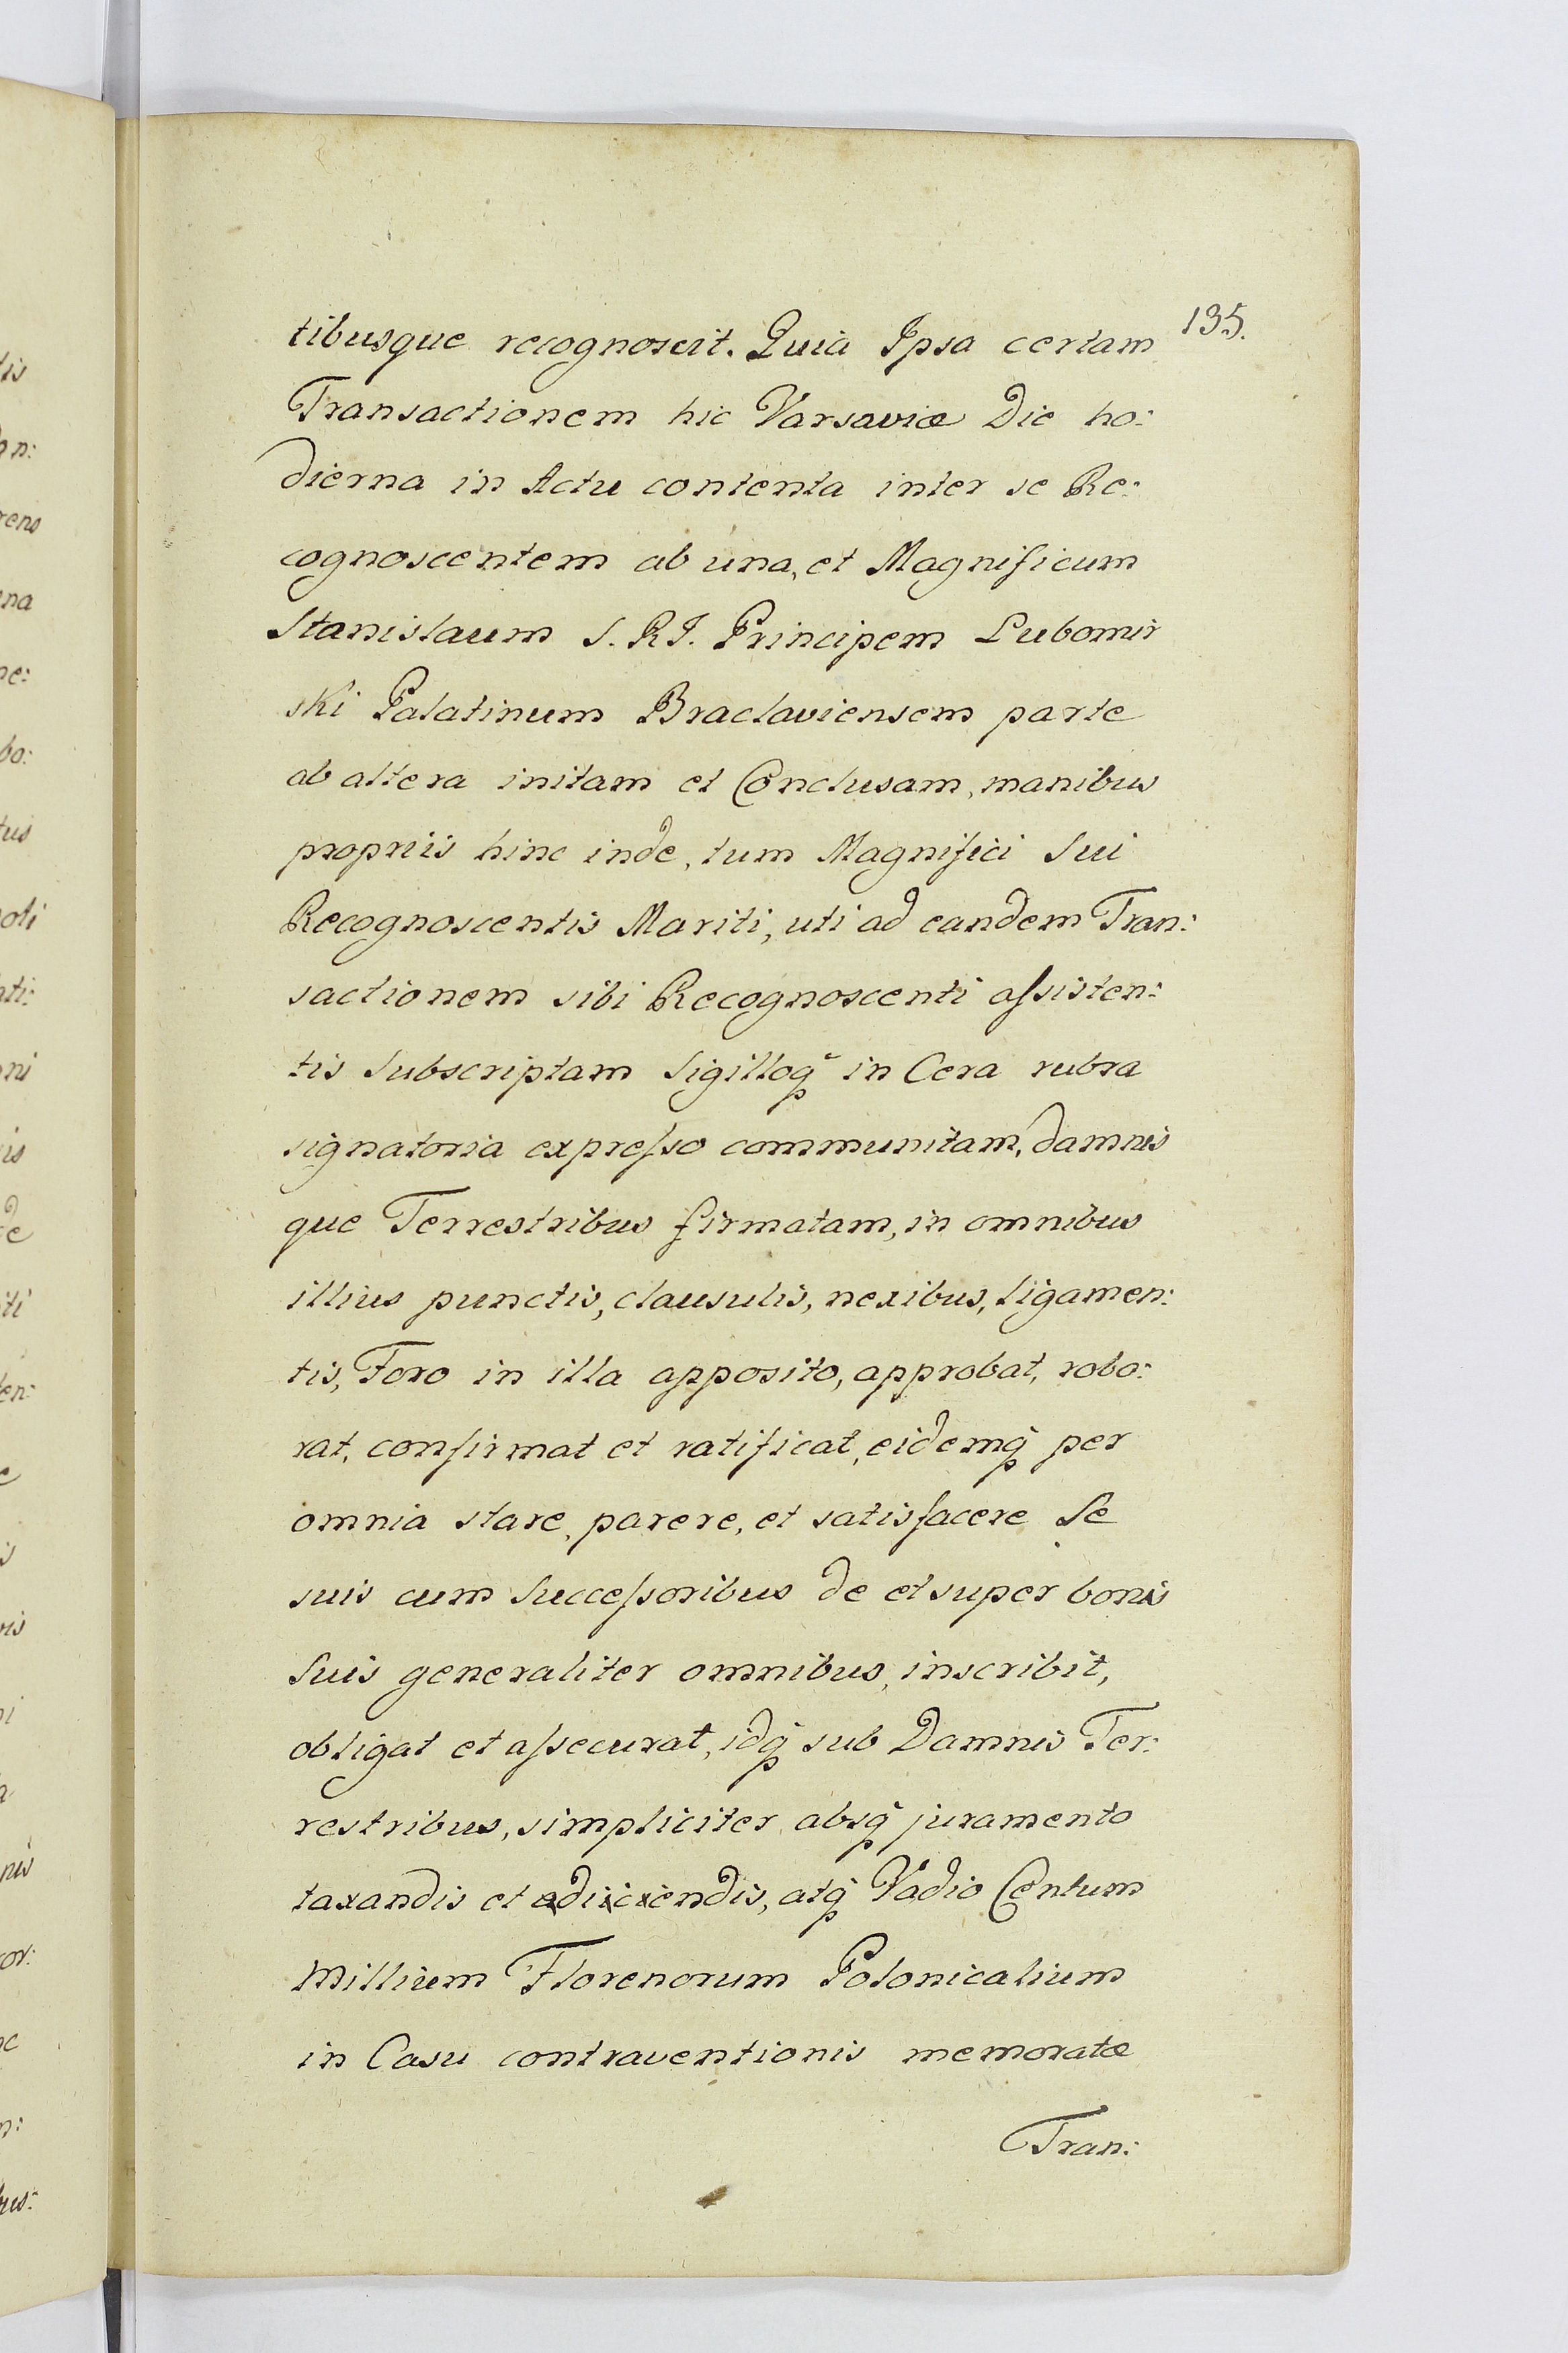 135.
tibusque recognoscit. Quia Ipsa certam
Transactionem hic Varsaviæ Die ho:
dierna in Actu contenta inter se Re:
cognoscentem ab una, et Magnificum
Stanislaum S. R I. Principem Lubomir
ski Palatinum Braclaviensem parte
ab altera initam et Conclusam, manibus
propriis hinc inde, tum Magnifici Sui
Recognoscentis Mariti, uti ad eandem Tran:
sactionem sibi Recognoscenti aſsisten:
tis Subscriptam Sigilloq̃ in Cera rubra
signatoria expreſso communitam, damnis
que Terrestribus firmatam, in omnibus
illius punctis, clausulis, nexibus, ligamen:
tis, Foro in illa apposito, approbat, robo:
rat, confirmat et ratificat, eidemq̃ per
omnia stare, parere, et satisfacere Se
suis cum Succeſsoribus de et super bonis
Suis generaliter omnibus, inscribit,
obligat et aſsecurat, idq̃ sub Damnis Ter:
restribus, simpliciter absq̃ juramento
taxandis et atq̃ Vadio Centum
Millium Florenorum Polonicalium
in Casu contraventionis memoratæ
Tran: